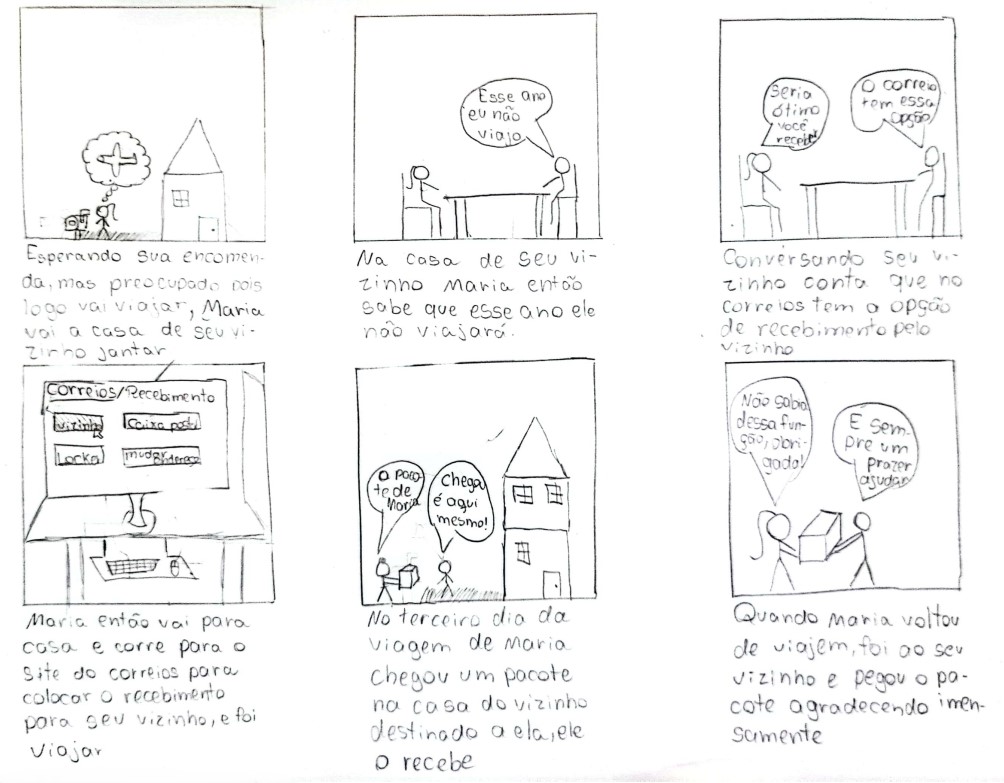 Esperando sua encomen-
da, mas preocupado pois
logo vai viajar, Maria
vai a casa de seu vi-
zinho jantar
Esse ano
eu não
viajo
Na casa de seu vi-
zinho Maria então
sabe que esse ano ele
não viajará.
Seria
ótimo
você
receber
O correio
tem essa
opção
Conversando seu vi-
zinho conta que no
correios tem a opção
de recebimento pelo
vizinho
Correios/Recebimento
vizinho
Caixa postal
Locker
mudar endereço
Maria então vai para
casa e corre para o
site do correios para
colocar o recebimento
para seu vizinho, e foi
viajar
O paco-
te de
Maria
Chegou
é aqui
mesmo!
No terceiro dia da
viagem de Maria
chegou um pacote
na casa do vizinho
destinado a ela, ele
o recebe
Não sabia
dessa fun-
ção, obri-
gada!
E sem-
pre um
prazer
ajudar
Quando Maria voltou
de viajem, foi ao seu
vizinho e pegou o pa-
cote agradecendo imen-
samente